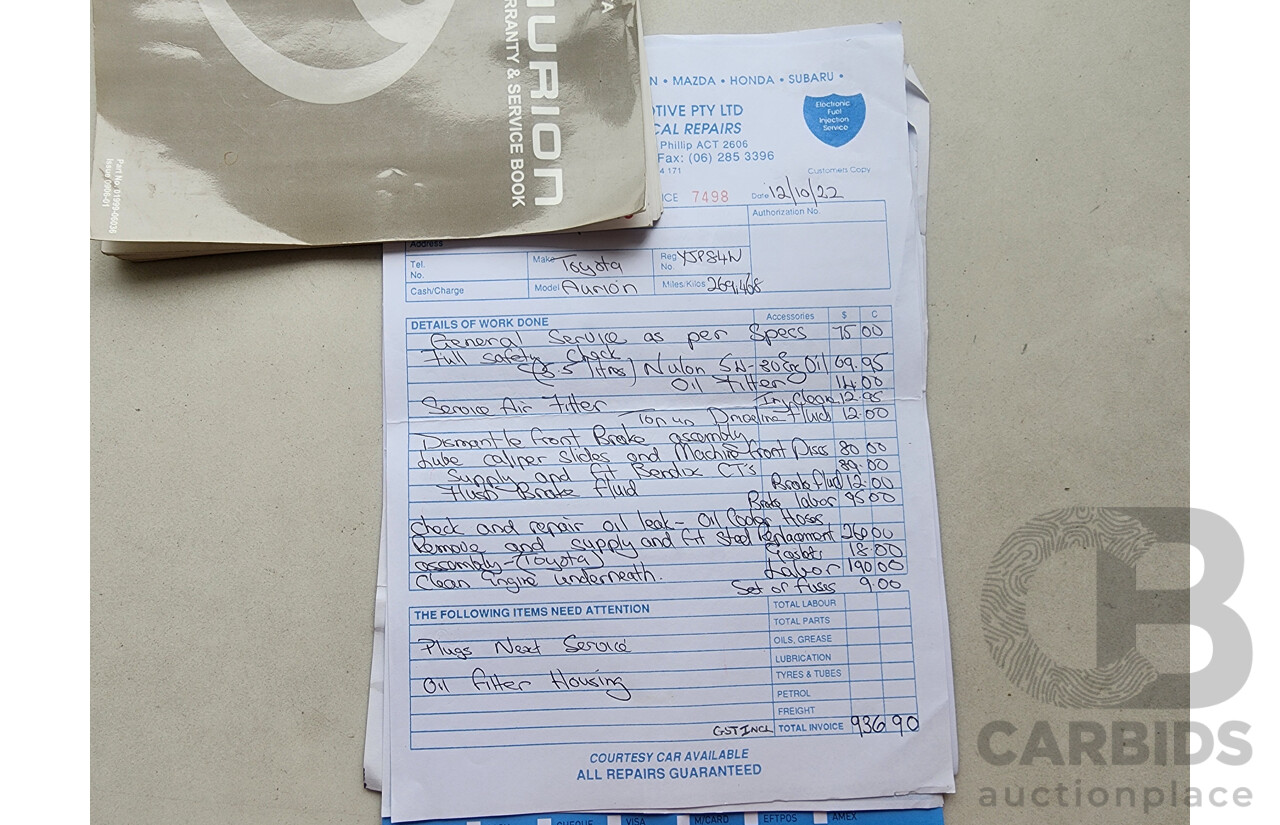 URION
RRANTY & SERVICE BOOK
Part No. 01999-06036
Issue 0606-01
N • MAZDA • HONDA • SUBARU •
OTIVE PTY LTD
CAL REPAIRS
Phillip ACT 2606
Fax: (06) 285 3396
4 171
Electronic
Fuel
Injection
Service
Customers Copy
ICE 7498 Date 12/10/22
Authorization No.
Address
Tel. No. Make Toyota Reg No.
Cash/Charge Model Aurion Miles/Kilos 269,468
DETAILS OF WORK DONE Accessories $ C
General Service as per Specs 75 00
Full safety Check
Nulon Oil 69.95
Oil Filter 14.00
Service Air Filter Inj Clean 12.95
Top up Driveline Fluids 12.00
Dismantle front Brake assembly
Lube caliper Slides and Machine front Discs 80 00
Supply and fit Bendix CT's 89.00
Flush Brake fluid Brake fluid 12.00
Brake labor 95 00
Check and repair oil leak - Oil Cooler Hoses
Remove and supply and fit Steel Replacement 260 00
assembly - (Toyota) Gaskets 18.00
Clean engine underneath. Labor 190 00
Set of fuses 9.00
THE FOLLOWING ITEMS NEED ATTENTION
TOTAL LABOUR
TOTAL PARTS
Plugs Next Service OILS, GREASE
LUBRICATION
Oil filter Housing TYRES & TUBES
PETROL
FREIGHT
GST INCL TOTAL INVOICE 936 90
COURTESY CAR AVAILABLE
ALL REPAIRS GUARANTEED
CHEQUE VISA M/CARD EFTPOS AMEX
CB
CARBIDS
auctionplace